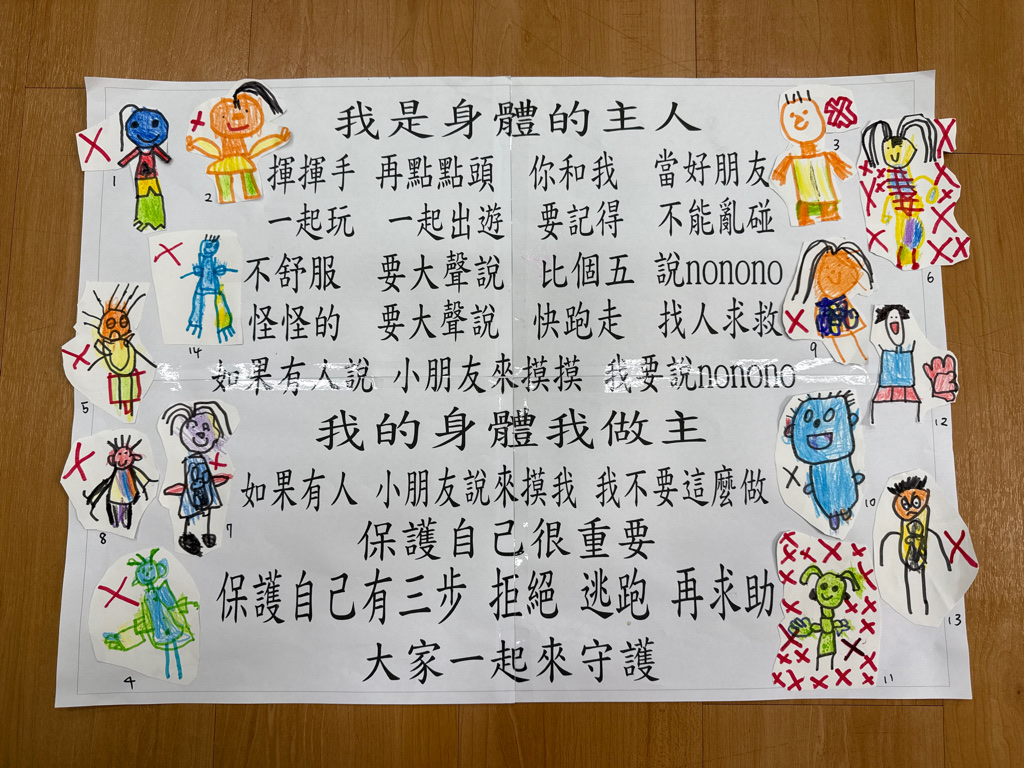 我是身體的主人
揮揮手 再點點頭 你和我 當好朋友
一起玩 一起出遊 要記得 不能亂碰
不舒服 要大聲說 比個五 說nonono
怪怪的 要大聲說 快跑走 找人求救
如果有人說 小朋友來摸摸 我要說nonono
我的身體我做主
如果有人 小朋友說來摸我 我不要這麼做
保護自己很重要
保護自己有三步 拒絕 逃跑 再求助
大家一起來守護
1
2
3
6
14
9
5
12
8
7
10
4
11
13